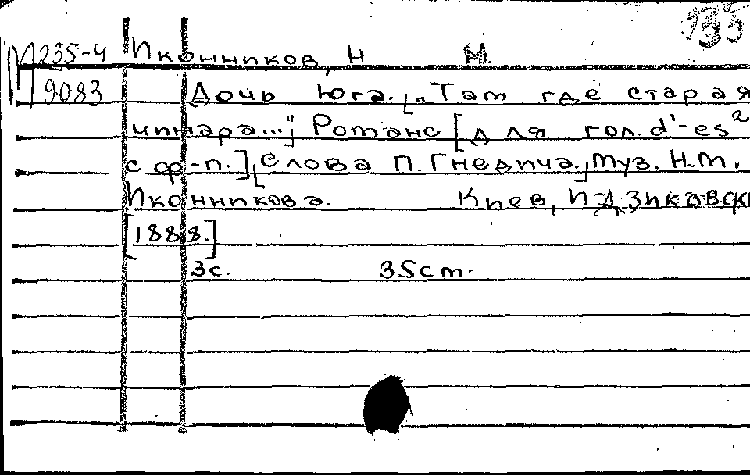 935
М 235-4 Иконников, Н М.
9083 Дочь Юга. [„Там где старая
чинара..."] Романс [для гол. d'-es²
с ф-п.], [Слова П. Гнедича,] муз. Н.М.
Иконникова. Киев, И дзиковски
[1888.]
3с. 35см.